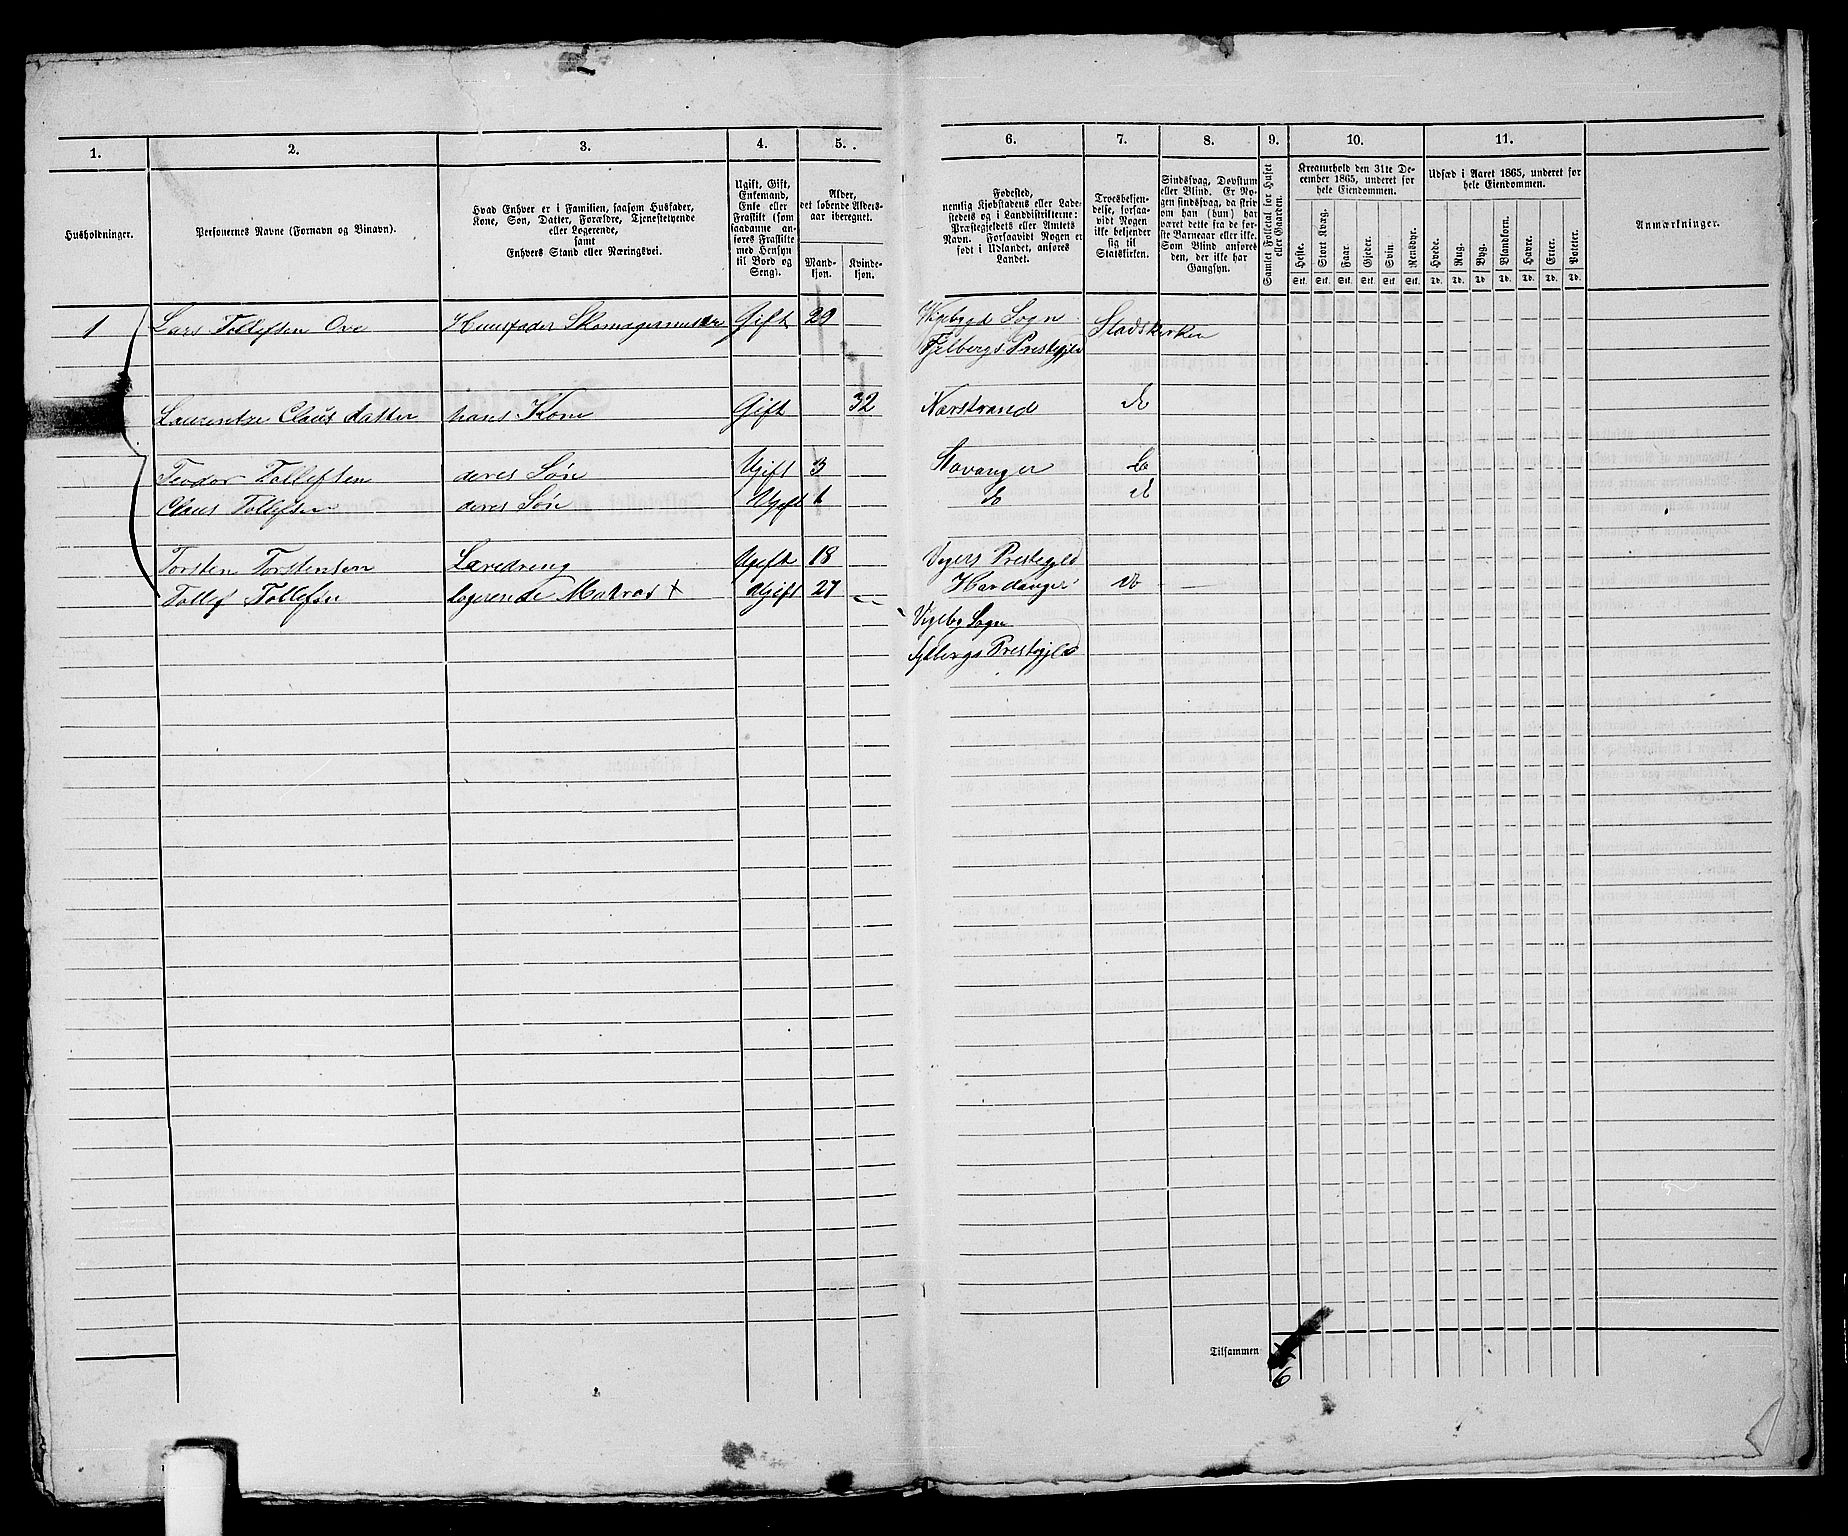 1. 2. 3. 4. 5. 6. 7. 8. 9. 10. 11.
Husholdninger.
Personernes Navne (Fornavn og Binavn).
Hvad Enhver er i Familien, saasom Husfader,
Kone, Søn, Datter, Forældre, Tjenestetyende
eller Logerende,
samt
Enhvers Stand eller Næringsvei.
Ugift, Gift,
Enkemand,
Enke eller
Fraskilt (som
saadanne an-
føres Fraskilte
med Hensyn
til Bord og
Seng).
Alder,
det løbende Alders-
aar iberegnet.
Mand-
kjøn.
Kvinde-
kjøn.
Fødested,
nemlig Kjøbstadens eller Lade-
stedets og i Landdistrikterne:
Præstegjeldets eller Amtets
Navn. Forsaavidt Nogen er
født i Udlandet, anføres
Landet.
Troesbekjen-
delse, forsaa-
vidt Nogen
ikke bekjender
sig til
Statskirken.
Sindssvag, Døvstum
eller Blind. Er No-
gen sindssvag, da skri-
ves om han (hun) har
været dette fra de før-
ste Barneaar eller ikke.
Som Blind anføres
den, der ikke har
Gangsyn.
Samlet Folketal for Huset
eller Gaarden.
Kreaturhold den 31te De-
cember 1865, underet for
hele Eiendommen.
Heste. Stort Kvæg. Faar. Gjeder. Svin. Rensdyr.
Stk. Stk. Stk. Stk. Stk. Stk.
Udsæd i Aaret 1865, underet for
hele Eiendommen.
Hvede. Rug. Byg. Blandkorn. Havre. Erter. Poteter.
Td. Td. Td. Td. Td. Td. Td.
Anmærkninger.
1 Lars Tollefsen Ove Huusfader Skomagermester Gift 29 Sogn Stadskirken
Fjelbergs Prestegjeld
Laurentze Claus datter hans Kone Gift 32 Nærstrand do
Teodor Tollefsen deres Søn Ugift 3 Stavanger do
Claus Tollefsen deres Søn Ugift 1 do do
Torsten Torstensen Læredreng Ugift 18 Prestegjeld
Hardanger do
Tollef Tollefsen logerende Matros + Ugift 27 Sogn
Fjelbergs Prestegjeld
Tilsammen
6